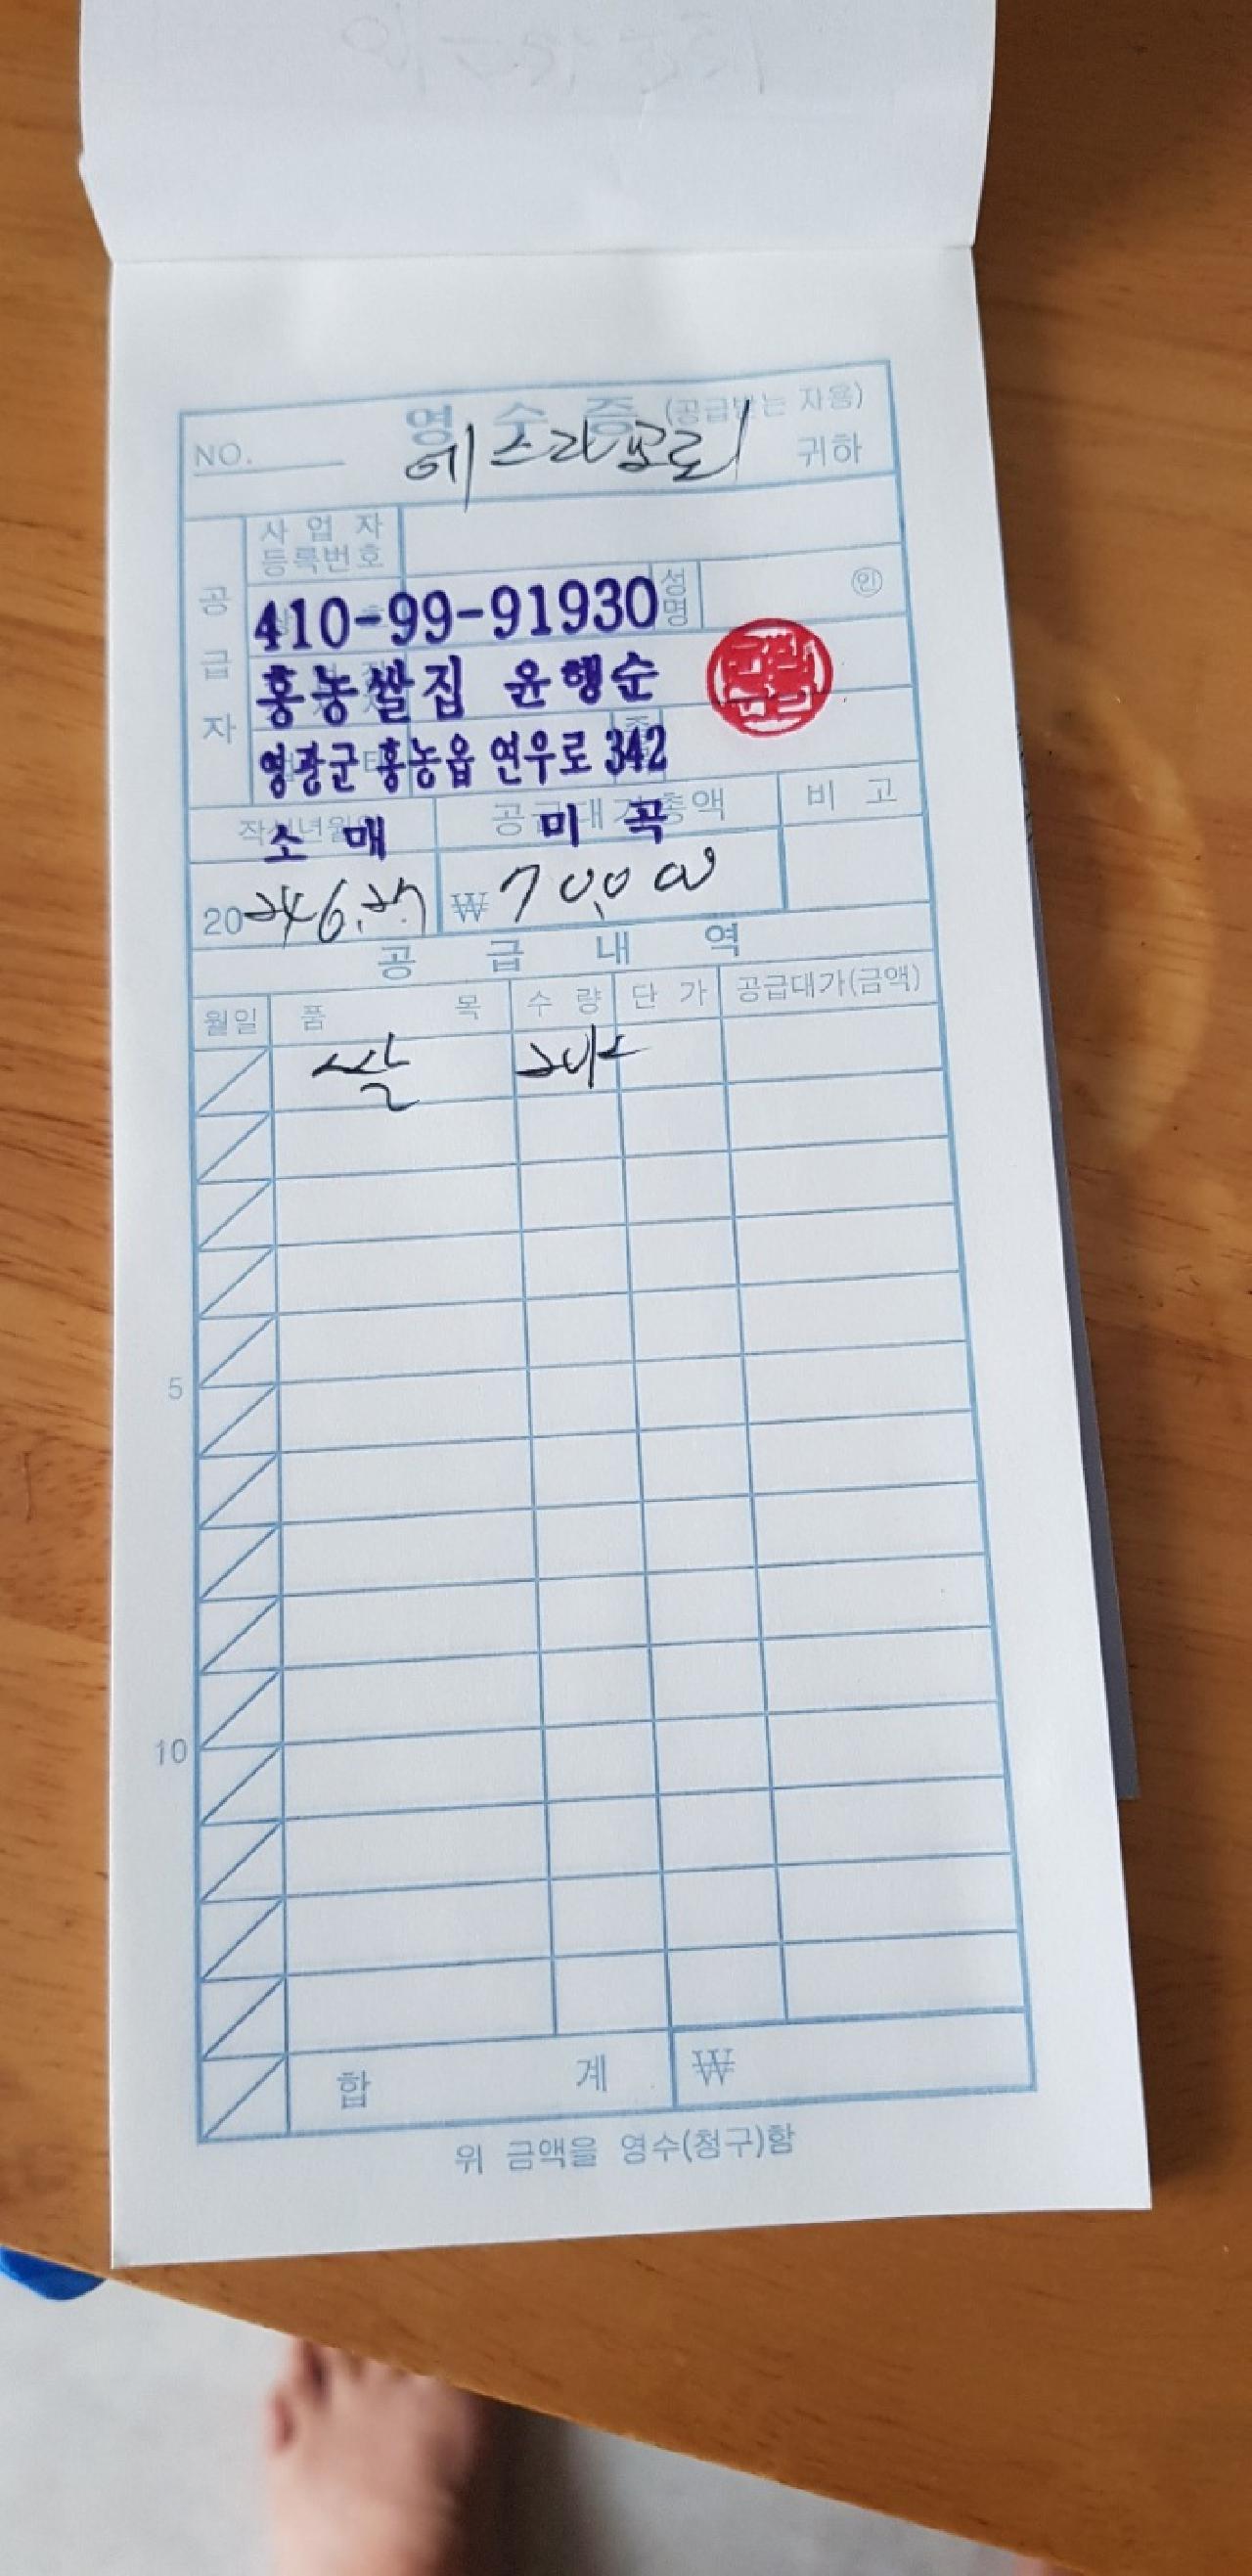 영 수 증 (공급받는 자용)
NO. 귀하
공급자
사업자
등록번호
410-99-91930 성명 ㊞
홍농쌀집 윤행순
영광군 홍농읍 연우로 342
작성년월일 공급대가총액 비 고
소 매 미 곡
2024 6.27 ₩ 70,000
공 급 내 역
월일 품 목 수 량 단 가 공급대가(금액)
쌀
5
10
합 계 ₩
위 금액을 영수(청구)함